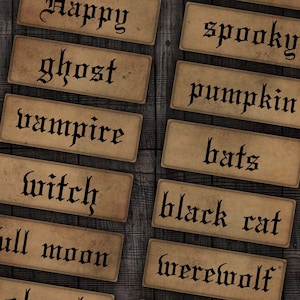 Happy
ghost
vampire
witch
full moon
spooky
pumpkin
bats
black cat
werewolf